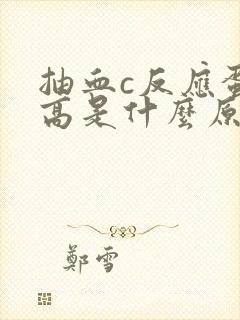 抽血c反應蛋
高是什麼原
鄭雪